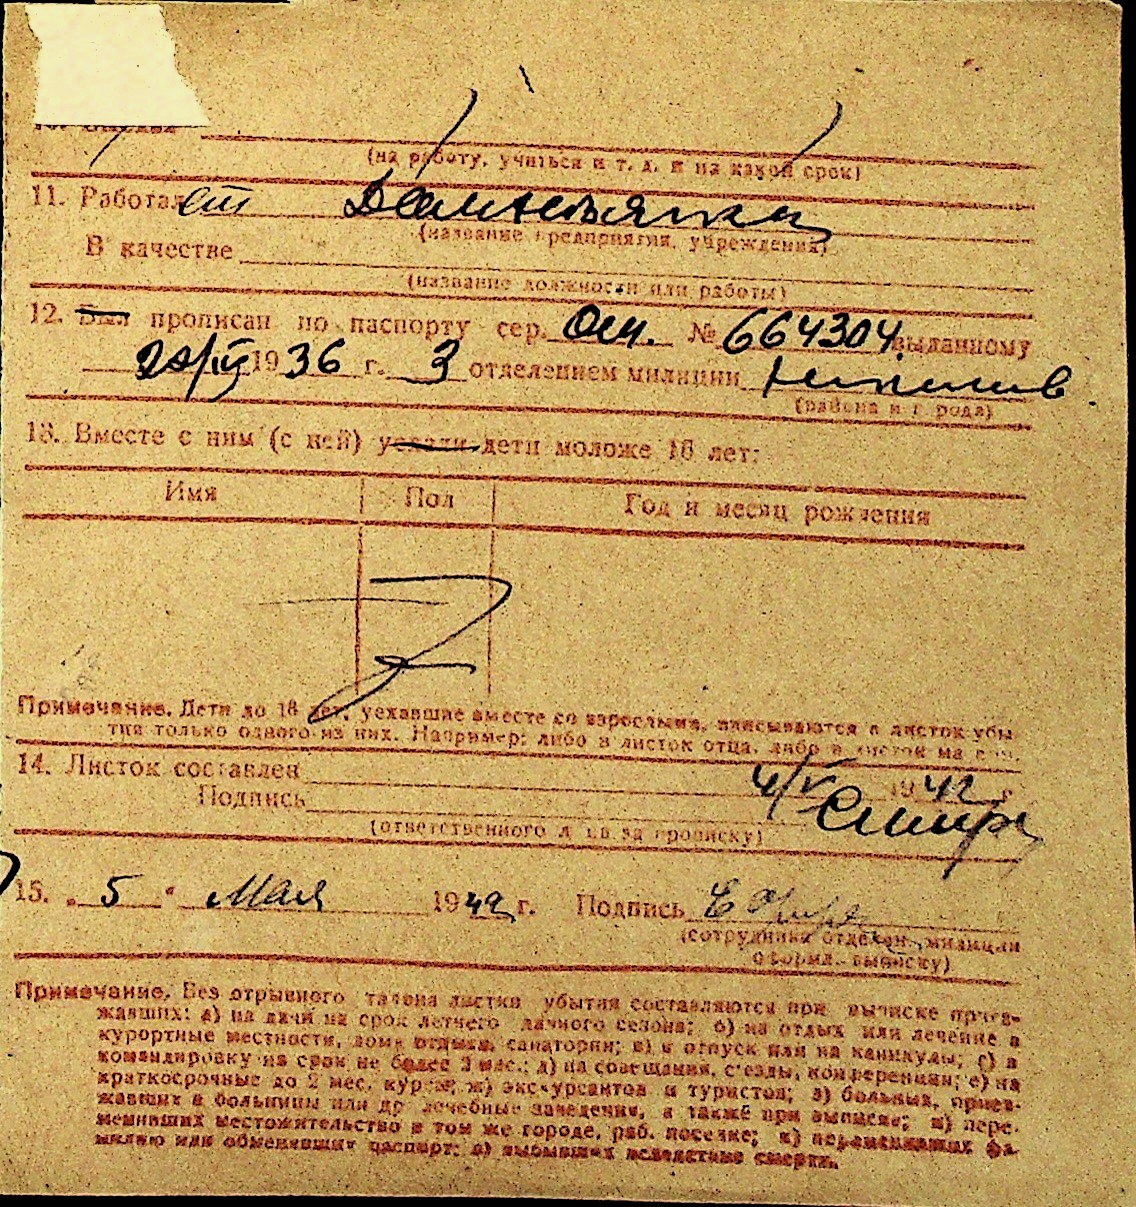 (на работу, учиться и т. д. и на какой срок)
11. Работал
(название предприятия, учреждения)
В качестве
(название должности или работы)
12. Был прописан по паспорту сер. № 664304 выданному
1936 г. 3 отделением милиции
(района и города)
13. Вместе с ним (с ней) уехали дети моложе 16 лет:
Имя Пол Год и месяц рождения
Примечание. Дети до 16 лет, уехавшие вместе со взрослыми, вписываются в листок убы
тия только одного из них. Например: либо в листок отца, либо в листок матери.
14. Листок составлен 4/V 1942 г.
Подпись
(ответственного лица за прописку)
15. „5“ Мая 1942 г. Подпись
(сотрудника отделен. милиции
оформл. выписку)
Примечание. Без отрывного талона листки убытия составляются при выписке приез-
жавших: а) на дачи на срок летнего дачного сезона; б) на отдых или лечение в
курортные местности, дома отдыха, санатории; в) в отпуск или на каникулы; г) в
командировку на срок не более 2 мес.; д) на совещания, съезды, конференции; е) на
краткосрочные до 2 мес. курсы; ж) экскурсантов и туристов; з) больных, приез-
жавших в больницы или др. лечебные заведения, а также при выписке; и) пере-
менивших местожительство в том же городе, раб. поселке; к) переменивших фа-
милию или обменивших паспорт; л) выбывших вследствие смерти.